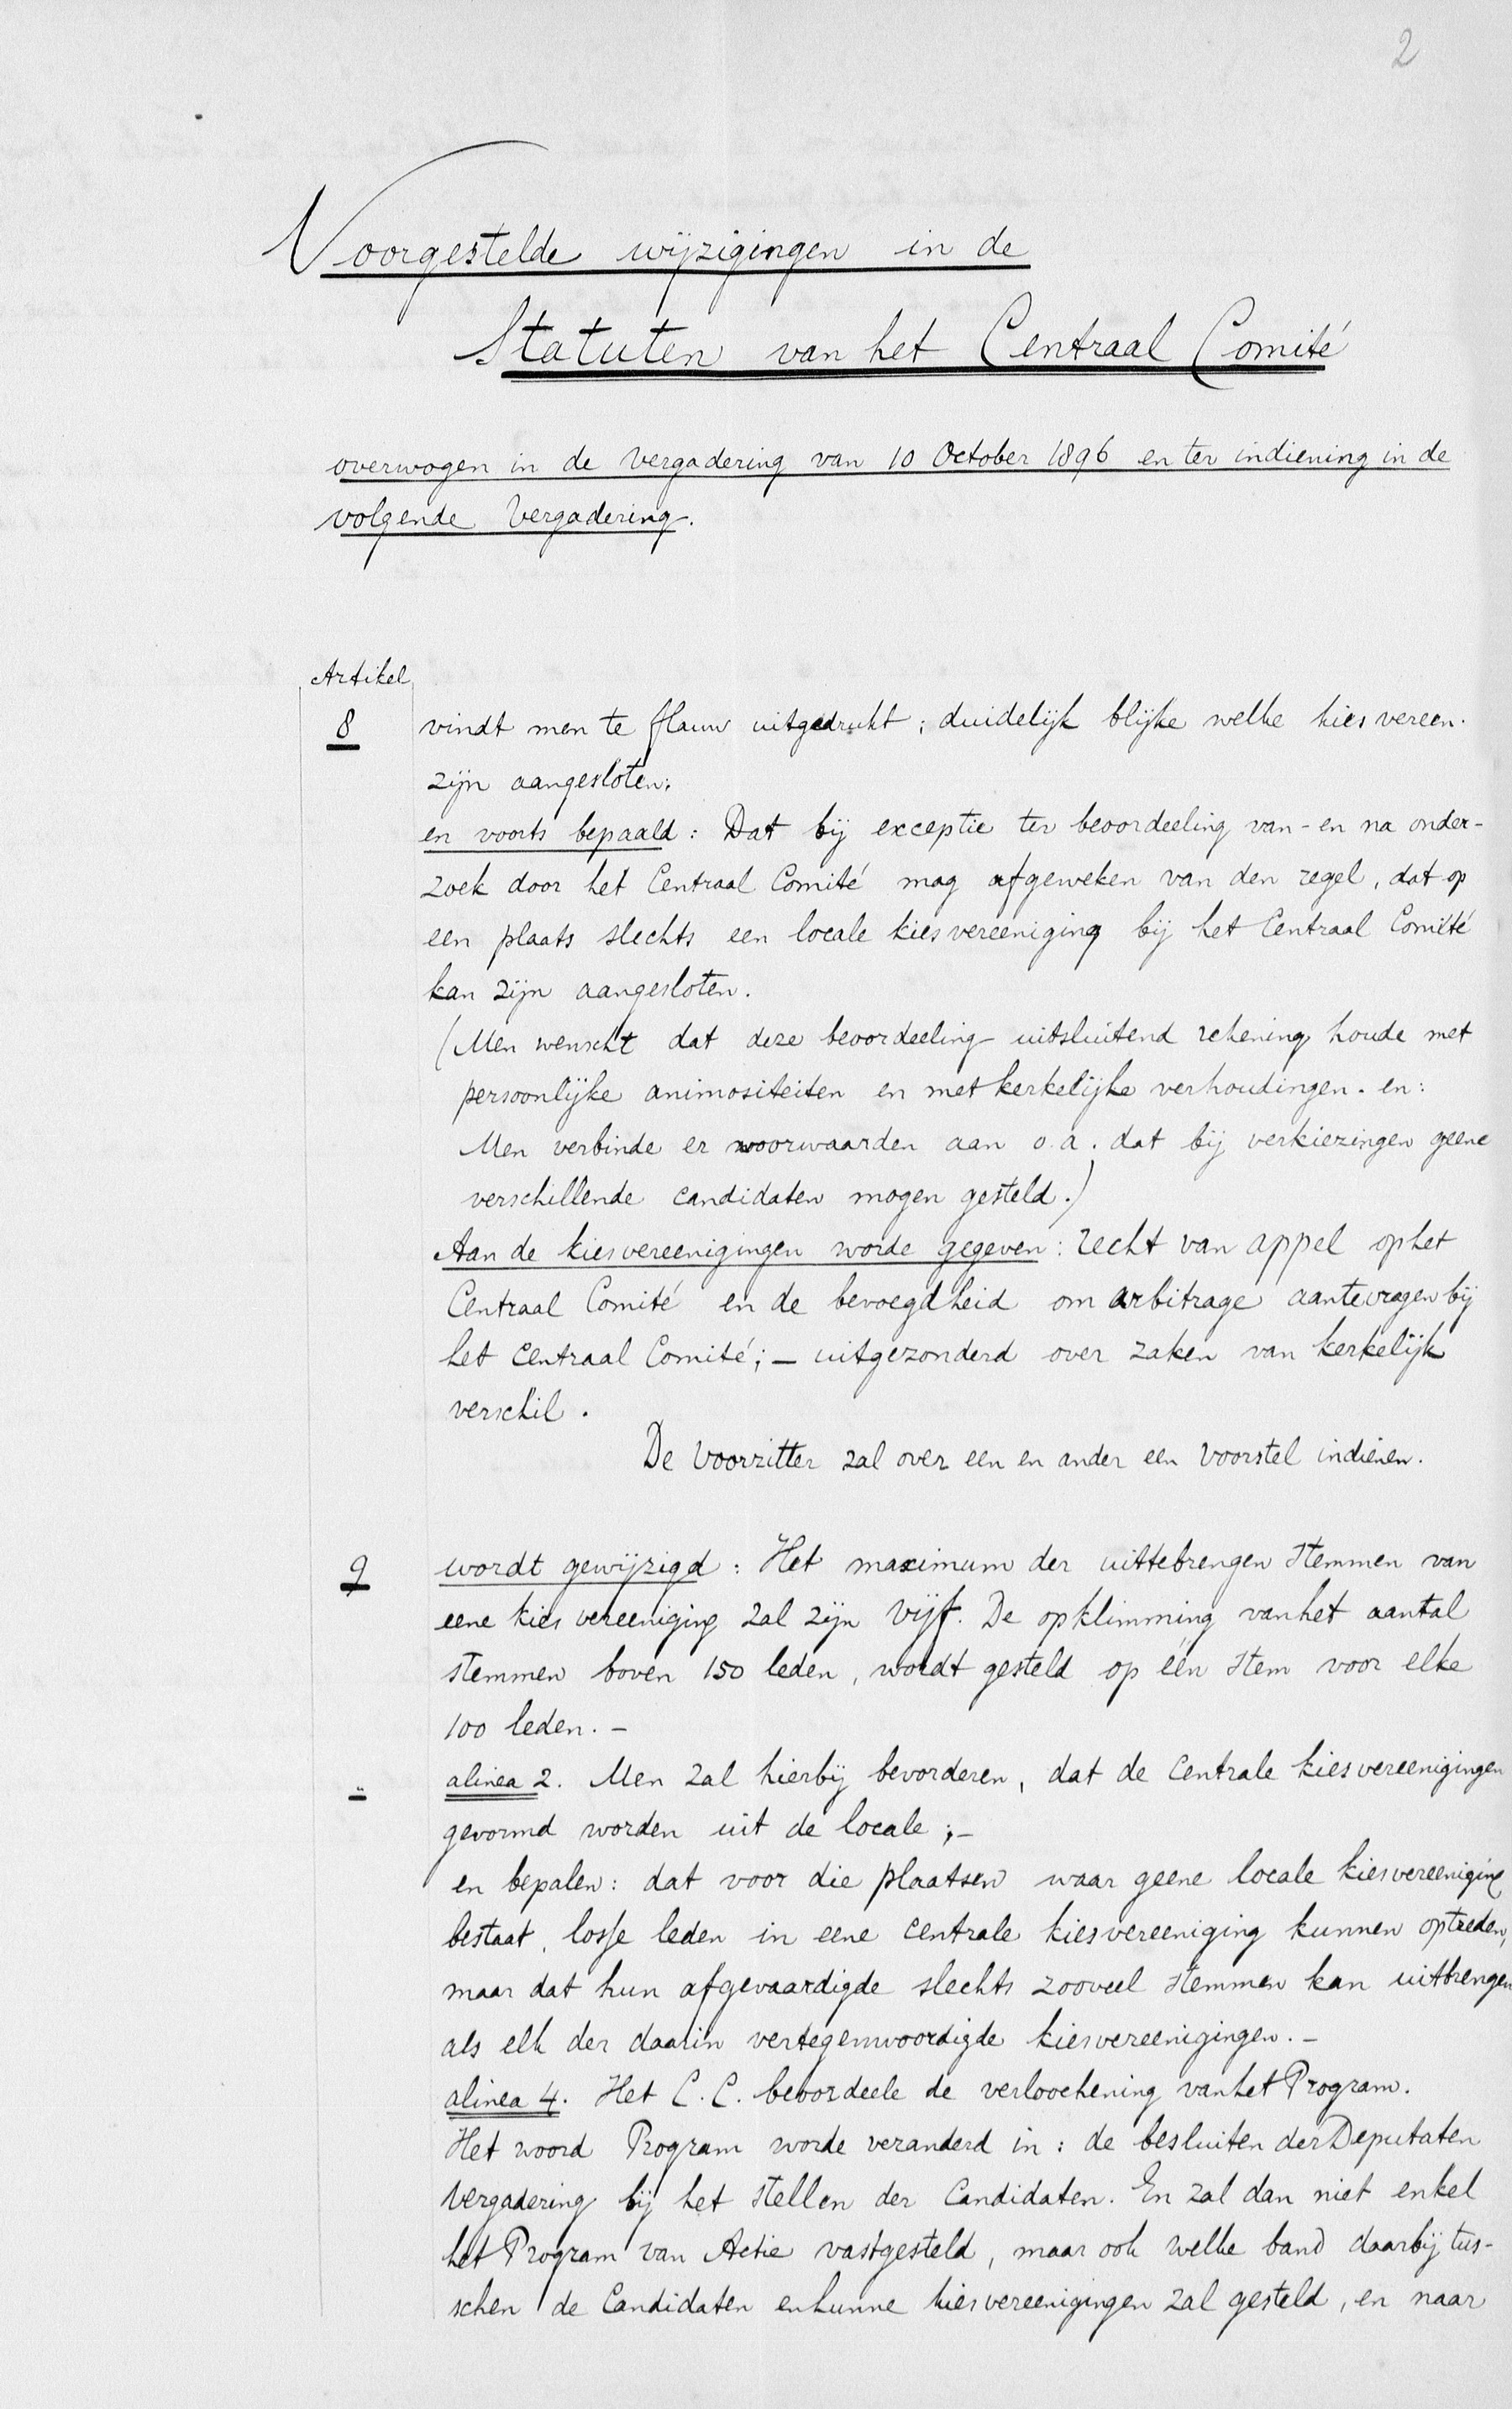 2
Voorgestelde wijzigingen in de
Statuten van het Centraal Comité
overwogen in de vergadering van 10 October 1896 en ter indiening in de
volgende vergadering.
Artikel
8 vindt men te flauw uitgedrukt; duidelijk blijke welke kiesvereen.
zijn aangesloten;
en voorts bepaald: Dat bij exceptie ter beoordeeling van- en na onder-
zoek door het Centraal Comité mag afgeweken van den regel, dat op
een plaats slechts een locale kiesvereeniging bij het Centraal Comité
kan zijn aangesloten.
(Men wenscht dat deze beoordeeling uitsluitend rekening houde met
persoonlijke animositeiten en met kerkelijke verhoudingen. en:
Men verbinde er voorwaarden aan o.a. dat bij verkiezingen geene
verschillende candidaten mogen gesteld.)
Aan de kiesvereenigingen worde gegeven: recht van appel op het
Centraal Comité en de bevoegdheid om arbitrage aantevragen bij
het Centraal Comité; - uitgezonderd over zaken van kerkelijk
verschil.
De Voorzitter zal over een en ander een voorstel indienen.
9 wordt gewijzigd: Het maximum der uittebrengen stemmen van
eene kiesvereeniging zal zijn vijf. De opklimming van het aantal
stemmen boven 150 leden, wordt gesteld op één stem voor elke
100 leden. -
" alinea 2. Men zal hierbij bevorderen, dat de Centrale kiesvereenigingen
gevormd worden uit de locale; -
en bepalen: dat voor die plaatsen waar geene locale kiesvereeniging
bestaat, losse leden in eene centrale kiesvereeniging kunnen optreden,
maar dat hun afgevaardigde slechts zooveel stemmen kan uitbrengen
als elk der daarin vertegenwoordigde kiesvereenigingen. -
alinea 4. Het C.C. beoordeele de verloochening van het Program.
Het woord Program worde veranderd in: de besluiten der Deputaten
vergadering bij het stellen der Candidaten. En zal dan niet enkel
het Program van Actie vastgesteld, maar ook welke band daarbij tus-
schen de Candidaten en hunne kiesvereenigingen zal gesteld, en naar